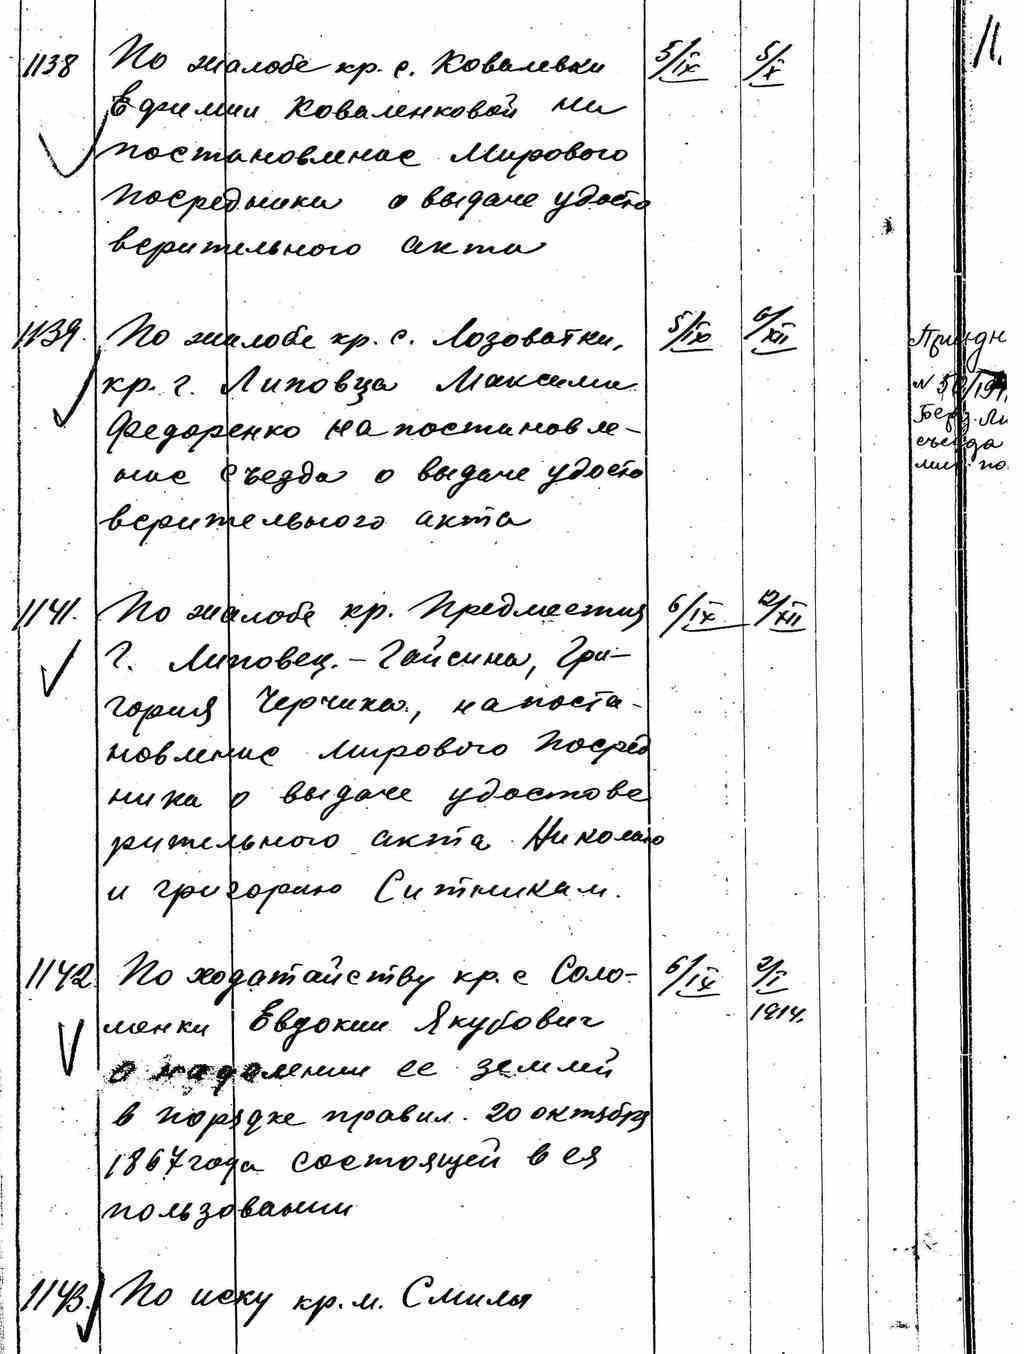 11.
1138 По жалобе кр. с. Ковалевки 5/IX 5/X
Ефимии Коваленковой на
постановление Мирового
Посредника о выдаче удосто
верительного акта
1139. По жалобе кр. с. Лозоватки, 5/IX 6/XII
кр. г. Липовца Максима
Федоренко на постановле-
ние съезда о выдаче удосто
верительного акта
N 50/191
съезда
1141. По жалобе кр. Предместия 6/IX 12/XII
г. Липовец. - Гайсина, Гри-
гория Черчика, на поста-
новление мирового Посред
ника о выдаче удостове
рительного акта Николаю
и Григорию Ситникам.
1142 По ходатайству кр. с Соло- 6/IX 2/I
менки Евдокии Якубович 1914.
о наделении ее землей
в порядке правил. 20 октября
1867 года состоящей в ея
пользовании
1143. По иску кр. м. Смилы